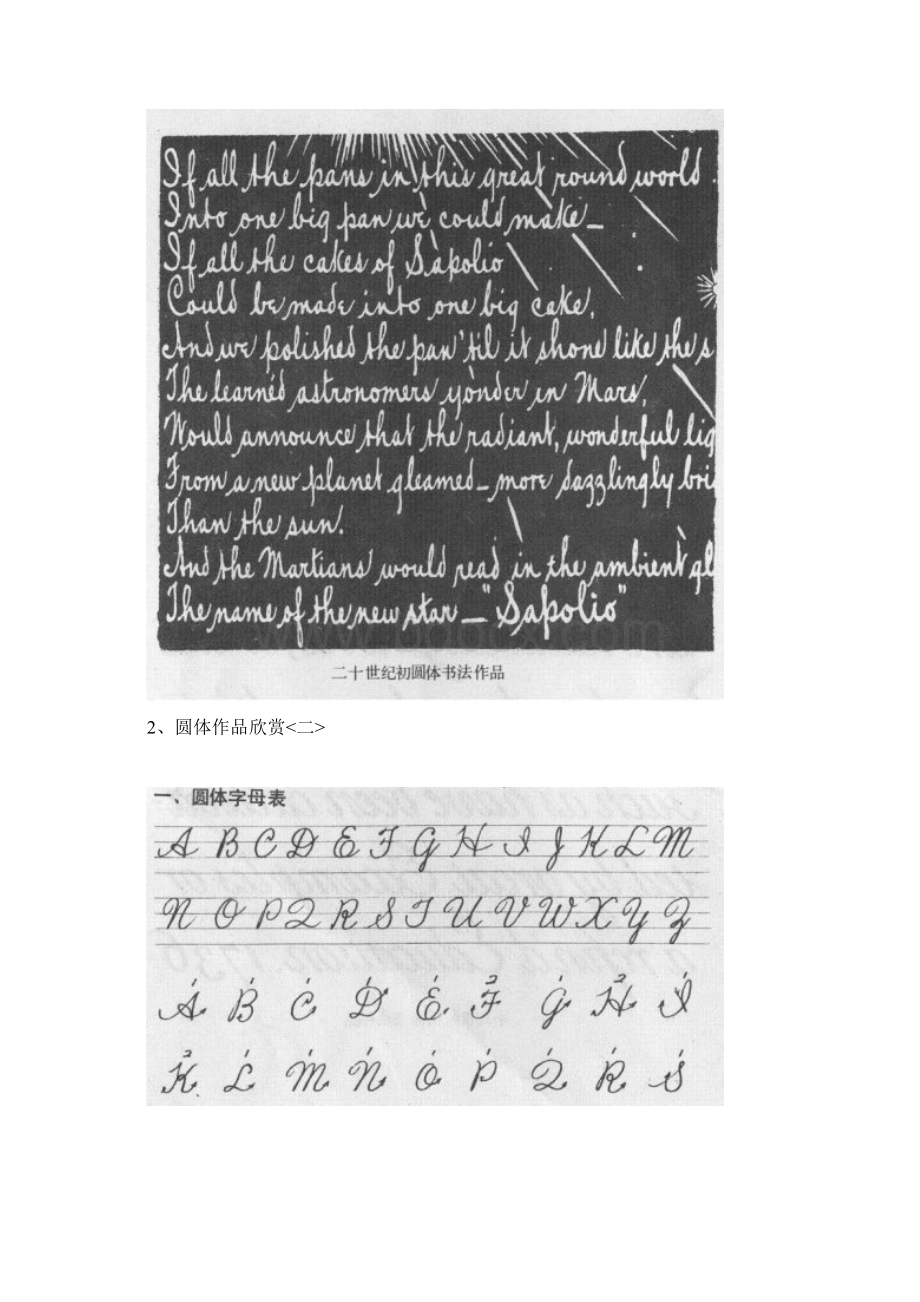 If all the pans in this great round world
Into one big pan we could make—
If all the cakes of Sapolio
Could be made into one big cake,
And we polished the pan 'til it shone like the s
The learnéd astronomers yonder in Mars,
Would announce that the radiant, wonderful lig
From a new planet gleamed—more dazzlingly bri
Than the sun.
And the Martians would read in the ambient gl
The name of the new star—"Sapolio"
二十世纪初圆体书法作品
2、圆体作品欣赏<二>
一、圆体字母表
A B C D E F G H I J K L M
N O P Q R S T U V W X Y Z
1 1 1 1 1 2 1 2 1
A B C D E F G H I
2 1 1 1 1 1 1 1 1
K L M N O P Q R S